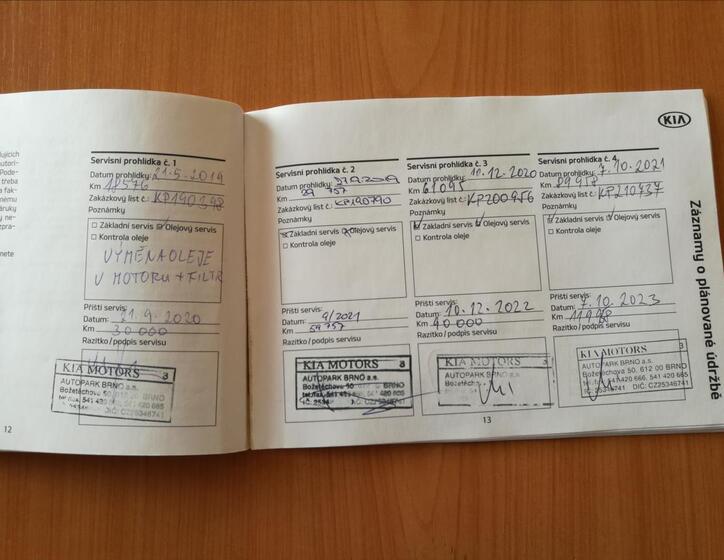 Servisní prohlídka č. 1
Datum prohlídky: 21.5.2019
Km 18576
Zakázkový list č.: KP190398
Poznámky
☐ Základní servis ☑ Olejový servis
☐ Kontrola oleje
VÝMĚNA OLEJE
V MOTORU + FILTR
Příští servis:
Datum: 21.9.2020
Km 30000
Razítko / podpis servisu
KIA MOTORS 3
AUTOPARK BRNO a.s.
Božetěchova 50, 612 00 BRNO
12
KIA
Servisní prohlídka č. 2
Datum prohlídky:
Km 29 757
Zakázkový list č.: KP190790
Poznámky
☒ Základní servis ☒ Olejový servis
☐ Kontrola oleje
Příští servis:
Datum: 9/2021
Km 59 757
Razítko / podpis servisu
KIA MOTORS 3
AUTOPARK BRNO a.s.
Božetěchova 50
Servisní prohlídka č. 3
Datum prohlídky: 10.12.2020
Km 61095
Zakázkový list č.: KP200956
Poznámky
☑ Základní servis ☑ Olejový servis
☐ Kontrola oleje
Příští servis:
Datum: 10.12.2022
Km 90 000
Razítko / podpis servisu
KIA MOTORS 3
AUTOPARK BRNO a.s.
Božetěchova
Servisní prohlídka č. 4
Datum prohlídky: 7.10.2021
Km 89958
Zakázkový list č.: KP210737
Poznámky
☑ Základní servis ☑ Olejový servis
☐ Kontrola oleje
Příští servis:
Datum: 7.10.2023
Km
Razítko / podpis servisu
KIA MOTORS 3
AUTOPARK BRNO a.s.
Božetěchova 50, 612 00 BRNO
DIČ: CZ25346741
13
Záznamy o plánované údržbě